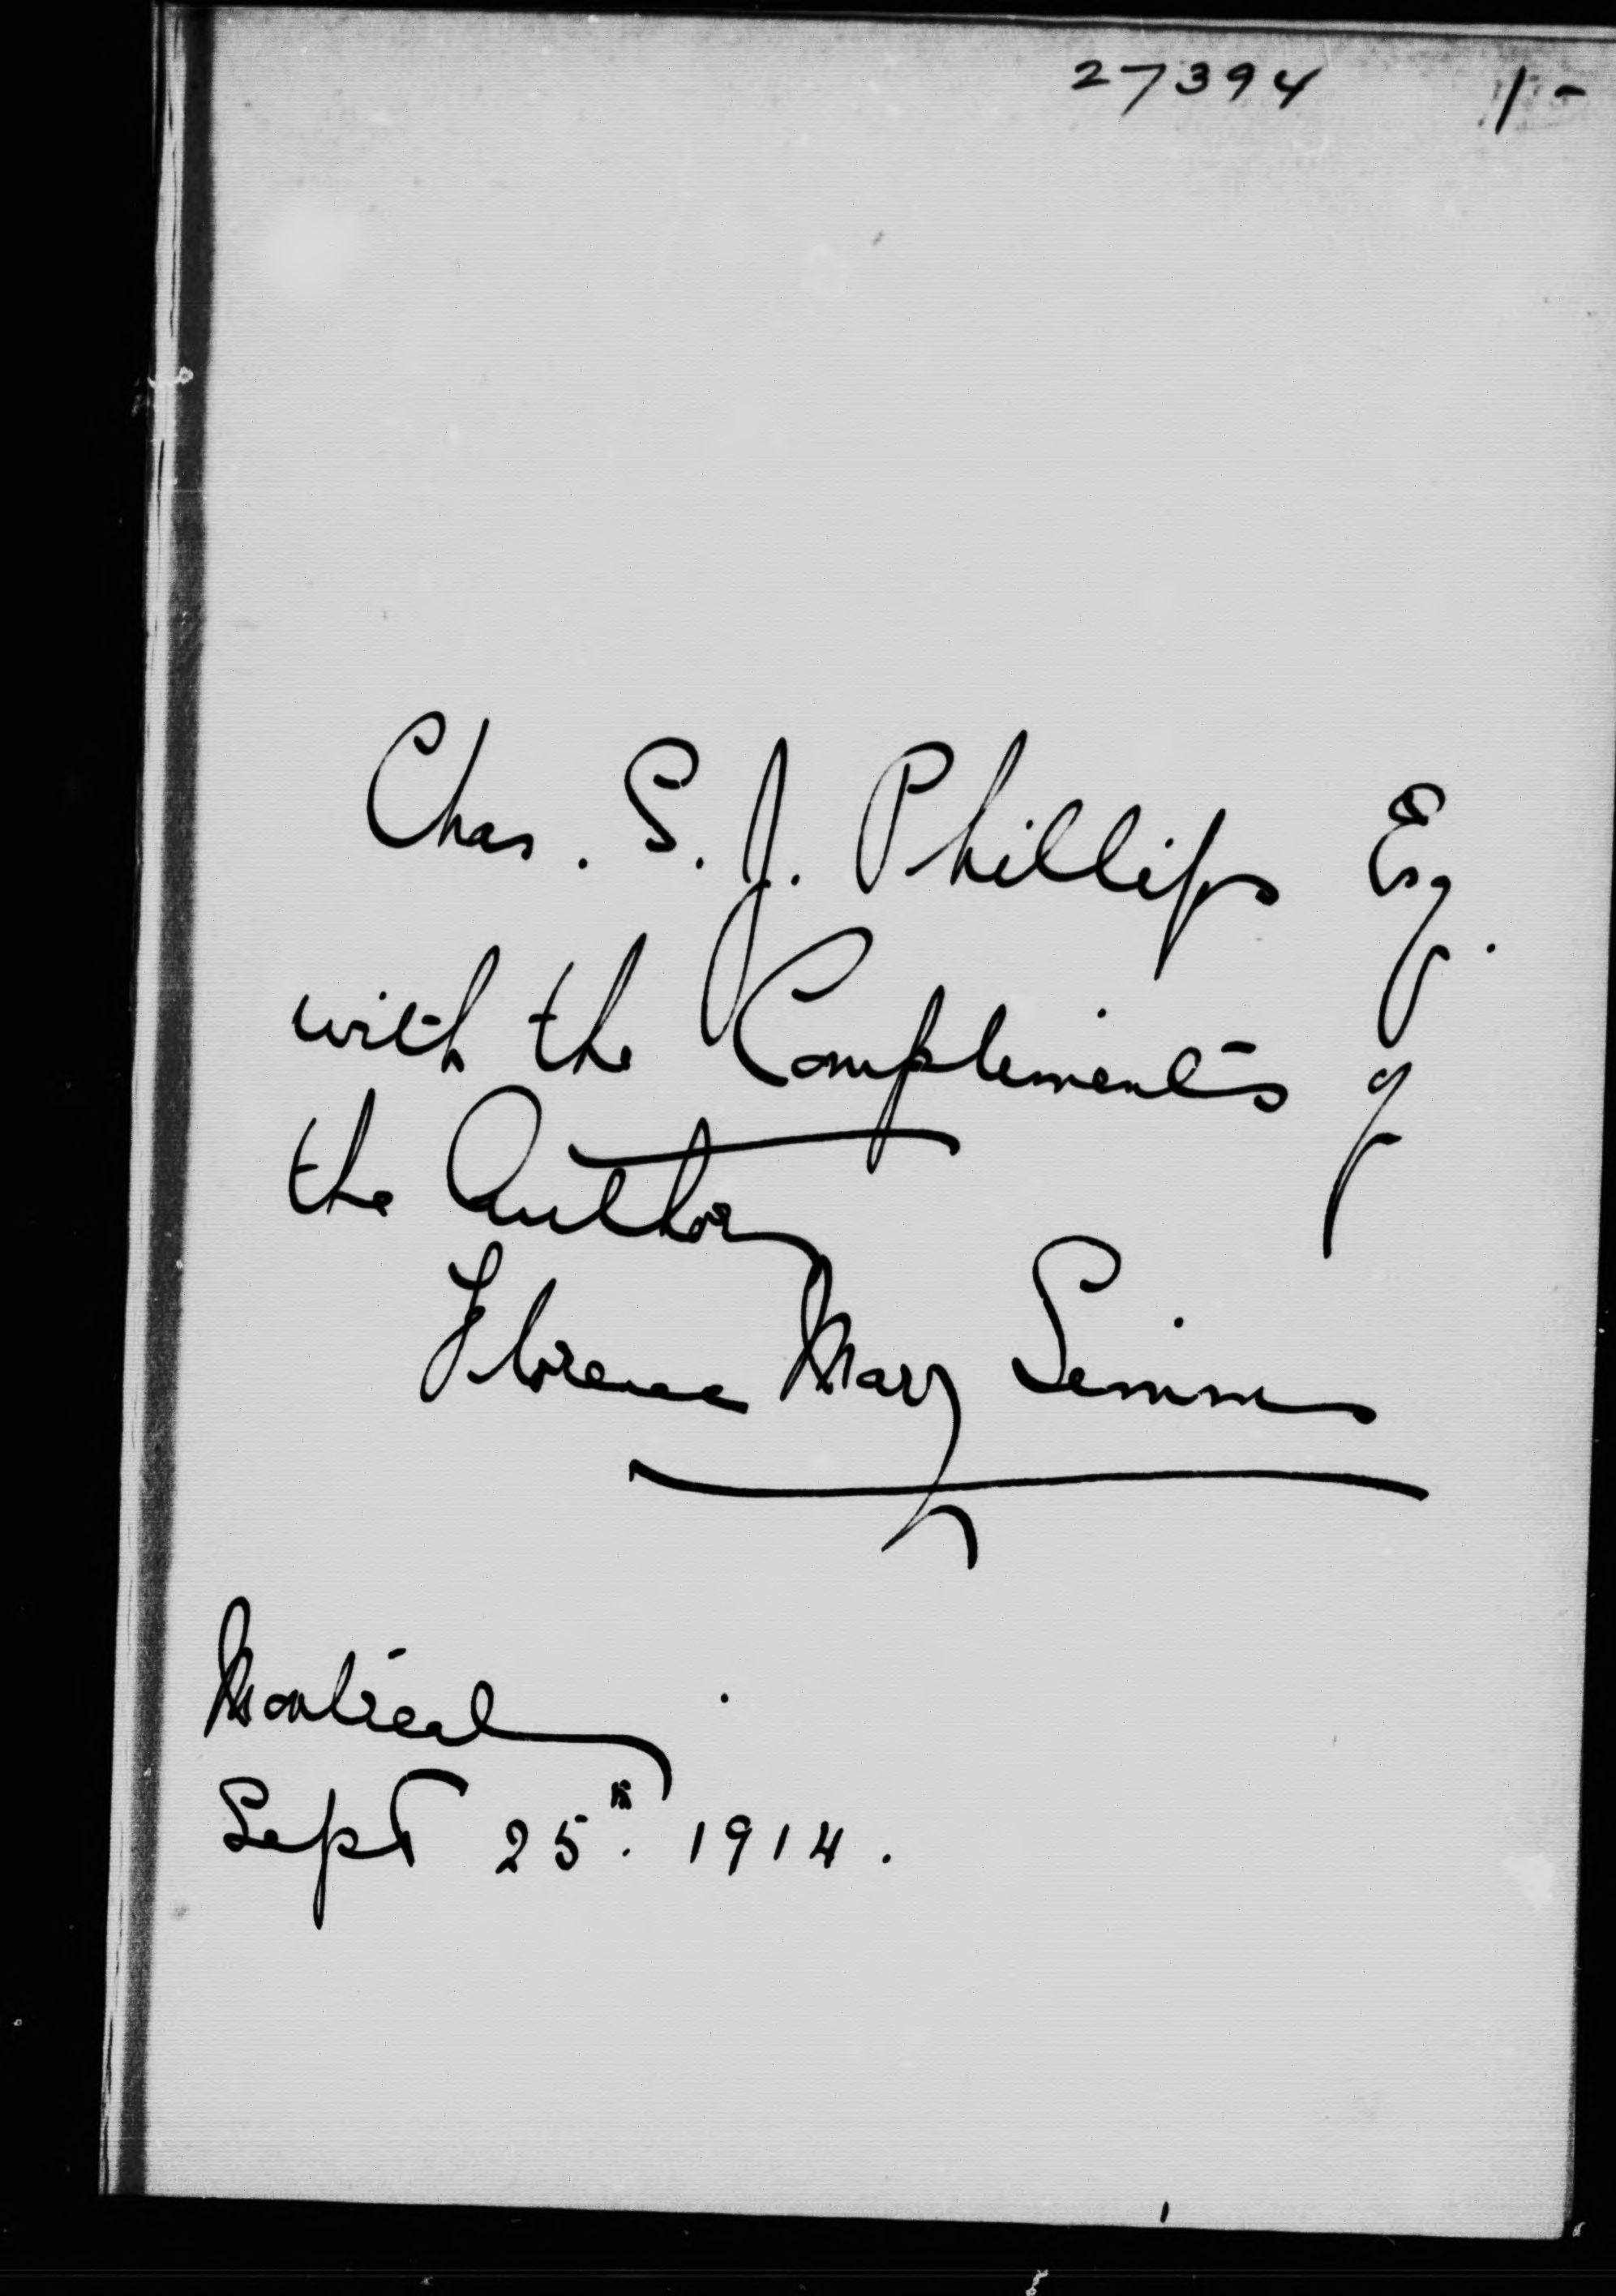 27394 1/-
Chas. S. J. Phillips Esq.
with the Compliments of
the Author
Florence Mary Simms
Montreal
Sept 25th. 1914.